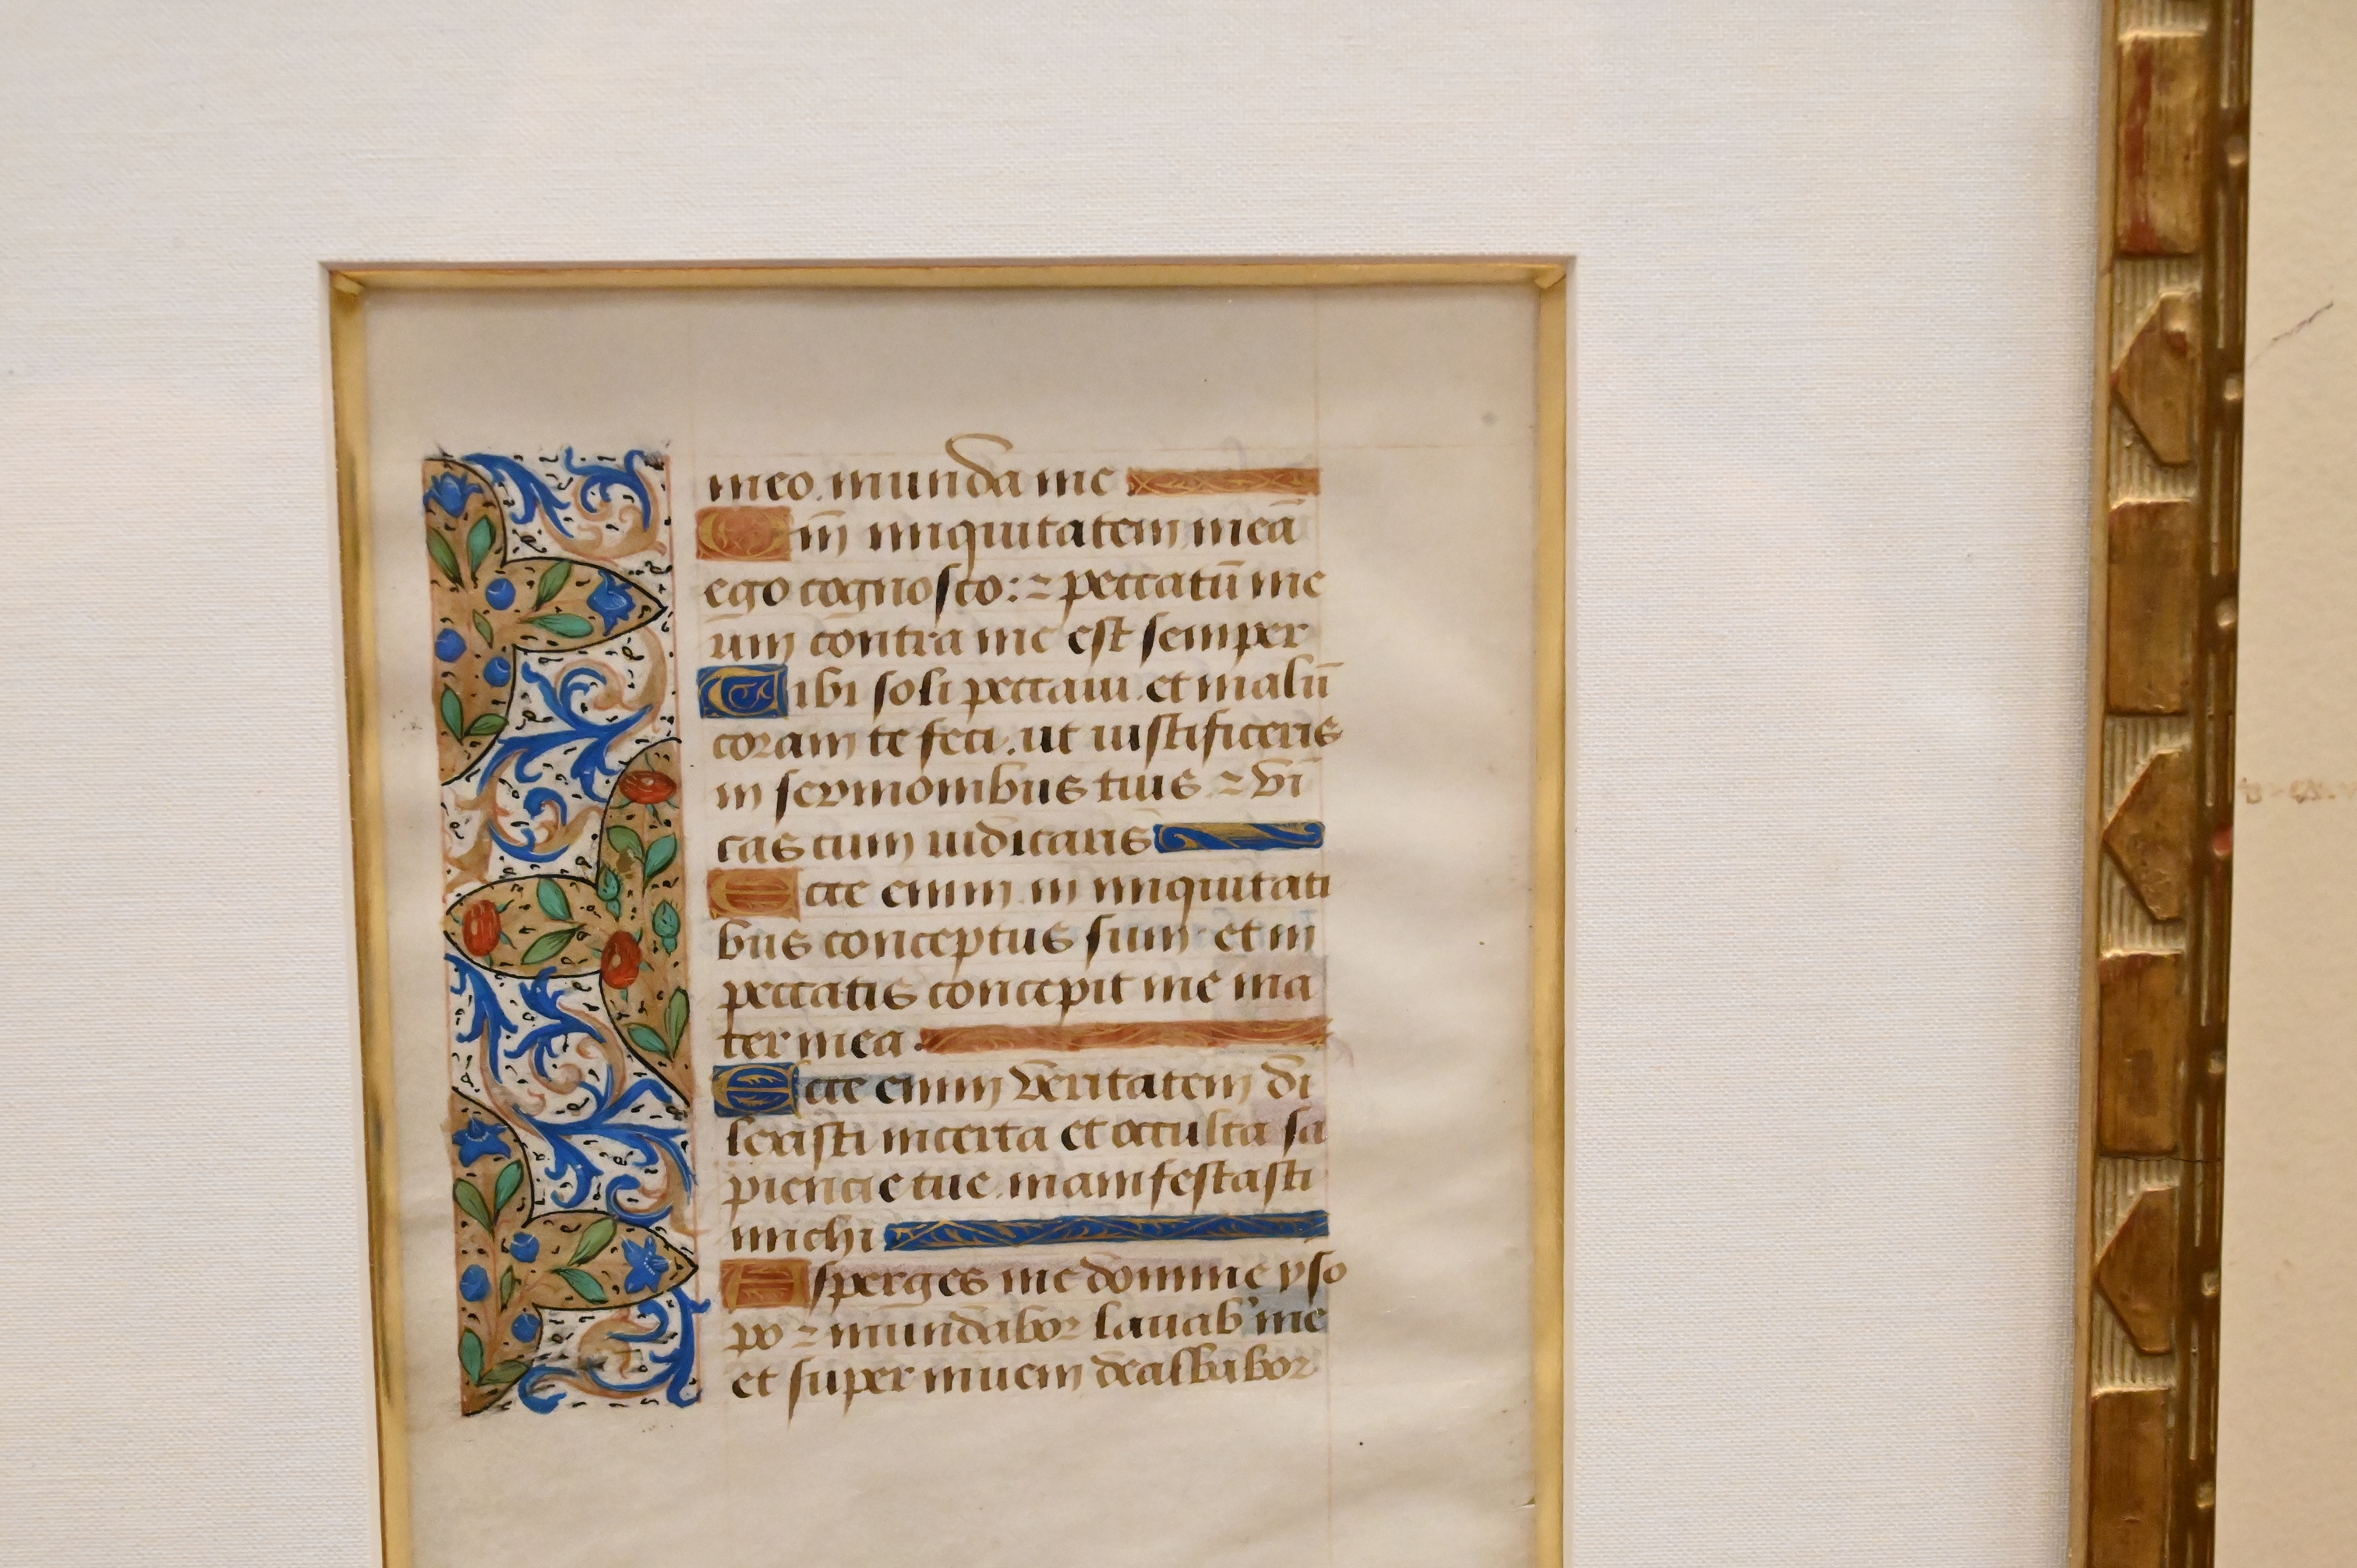 meo munda me
Qm̄ iniquitatem meā
ego cognosco: ⁊ peccatū me
um contra me est semper
Tibi soli peccaui et malū
coram te feci. ut iustificeris
in sermonibus tuis ⁊ vī
cas cum iudicaris
Ecce enim in iniquitati
bus conceptus sum et in
peccatis concepit me ma
ter mea.
Ecce enim veritatem di
lexisti incerta et occulta sa
piencie tue manifestasti
michi
Asperges me domine yso
po ⁊ mundabor lauab' me
et super niuem dealbabor